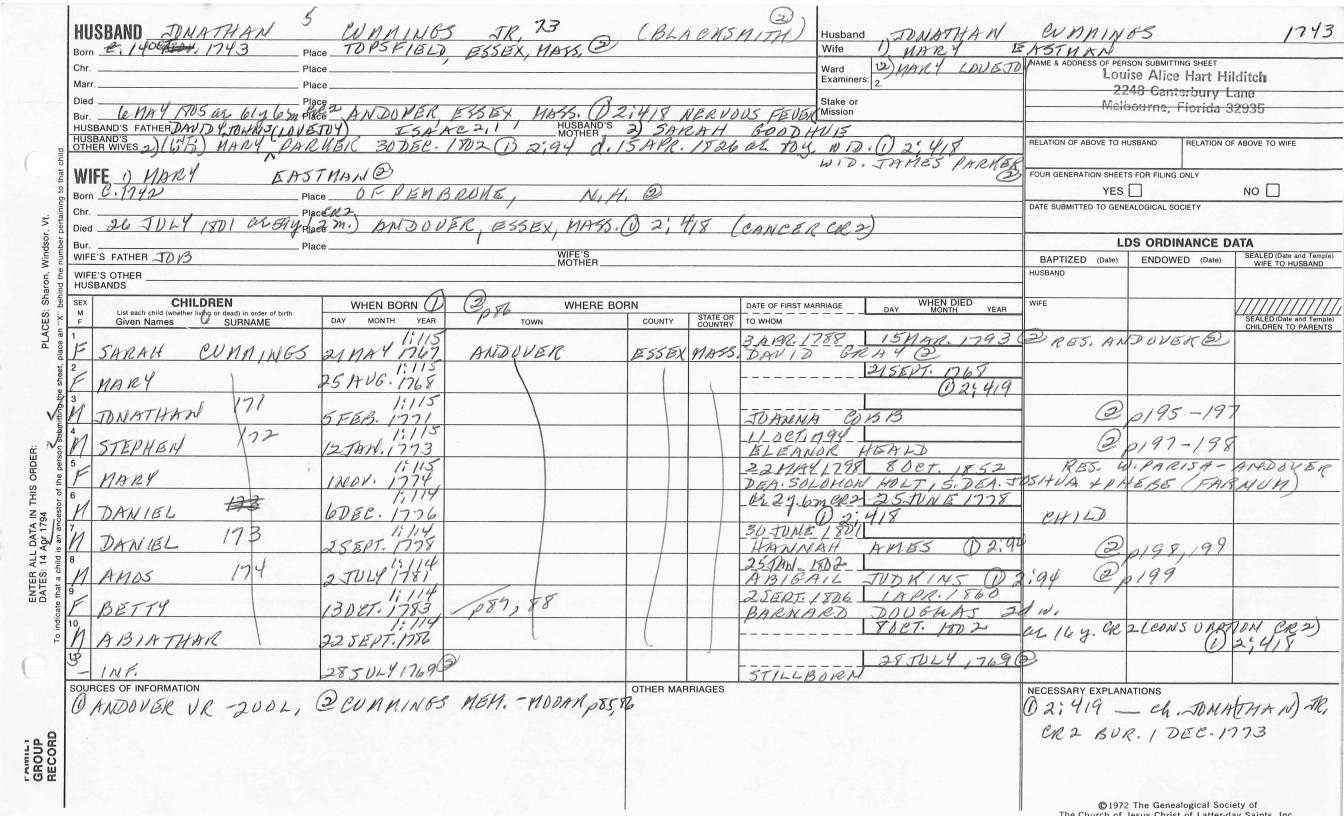 5
HUSBAND JONATHAN CUMMINGS JR, 73 (BLACKSMITH) ②
Born c. 14 OCT. 1743 Place TOPSFIELD, ESSEX, MASS. ②
Chr. Place
Marr. Place
Died Place
Bur. 6 MAY 1805 ae 61y 6m CR2 ANDOVER ESSEX, MASS. ① 2:418 NERVOUS FEVER
HUSBAND'S FATHER HUSBAND'S MOTHER 2) SARAH GOODHUE
HUSBAND'S OTHER WIVES 2) MARY PARKER 30 DEC. 1802 ① 2:94 d. 15 APR. 1826 ae 70y. WID. ① 2:418
WID. JAMES PARKER ②
WIFE 1) MARY EASTMAN ②
Born C. 1742 Place OF PEMBROKE, N.H. ②
Chr. Place CR2
Died 26 JULY 1801 ANDOVER, ESSEX, MASS. ① 2:418 (CANCER CR2)
Bur. Place
WIFE'S FATHER JOB WIFE'S MOTHER
WIFE'S OTHER HUSBANDS
Husband JONATHAN CUMMINGS 1743
Wife 1) MARY EASTMAN
Ward 2) MARY LOVEJO
Examiners: 2.
Stake or Mission
NAME & ADDRESS OF PERSON SUBMITTING SHEET
Louise Alice Hart Hilditch
2248 Canterbury Lane
Melbourne, Florida 32935
RELATION OF ABOVE TO HUSBAND RELATION OF ABOVE TO WIFE
FOUR GENERATION SHEETS FOR FILING ONLY
YES NO
DATE SUBMITTED TO GENEALOGICAL SOCIETY
LDS ORDINANCE DATA
BAPTIZED (Date) ENDOWED (Date) SEALED (Date and Temple) WIFE TO HUSBAND
HUSBAND
WIFE
SEALED (Date and Temple) CHILDREN TO PARENTS
SEX M F CHILDREN WHEN BORN ① ② p86 WHERE BORN DATE OF FIRST MARRIAGE WHEN DIED
List each child (whether living or dead) in order of birth
Given Names SURNAME DAY MONTH YEAR TOWN COUNTY STATE OR COUNTRY TO WHOM DAY MONTH YEAR
1 1:115 3 APR. 1788 15 MAR. 1793 ② RES. ANDOVER ②
F SARAH CUMMINGS 21 MAY 1767 ANDOVER ESSEX MASS. DAVID GRAY ②
2 1:115 21 SEPT. 1768
F MARY 25 AUG. 1768 ① 2:419
3 171 1:115
M JONATHAN 5 FEB. 1771 JOANNA COBB ② p195-197
4 172 1:115 11 OCT. 1794
M STEPHEN 12 JAN. 1773 ELEANOR HEALD ② p197-198
5 1:115 22 MAY 1798 8 OCT. 1852 RES. W. PARISH-ANDOVER
F MARY 1 NOV. 1774 DEA. SOLOMON HOLT, S. DEA. JOSHUA & PHEBE (FARNUM)
6 1:114 ae 2y 6m CR2 25 JUNE 1778
M DANIEL 6 DEC. 1776 ① 2:418 CHILD
7 173 1:114 30 JUNE 1801
M DANIEL 2 SEPT. 1778 HANNAH AMES ① 2:94 ② p198, 199
8 174 1:114 25 JAN. 1802
M AMOS 2 JULY 1781 ABIGAIL JUDKINS ① 2:94 ② p199
9 1:114 2 SEPT. 1806 1 APR. 1860
F BETTY 13 OCT. 1783 p87, 88 BARNARD DOUGLAS 2d w.
10 1:114 8 OCT. 1802 ae 16 y. CR2 (CONSUMTION CR2)
M ABIATHAR 22 SEPT. 1786 ① 2:418
28 JULY, 1769 ②
- INF. 28 JULY 1769 ② STILLBORN
SOURCES OF INFORMATION OTHER MARRIAGES NECESSARY EXPLANATIONS
① ANDOVER VR - ② CUMMINGS MEM. - p85, 86
① 2:419 — ch. JONA(THAN) JR.
CR2 BUR. 1 DEC. 1773
©1972 The Genealogical Society of
The Church of Jesus Christ of Latter-day Saints, Inc.
PLACES: Sharon, Windsor, Vt.
ENTER ALL DATA IN THIS ORDER:
DATES: 14 Apr 1794
To indicate that a child is an ancestor of the person submitting the sheet, place an "X" behind the number pertaining to that child.
FAMILY GROUP RECORD